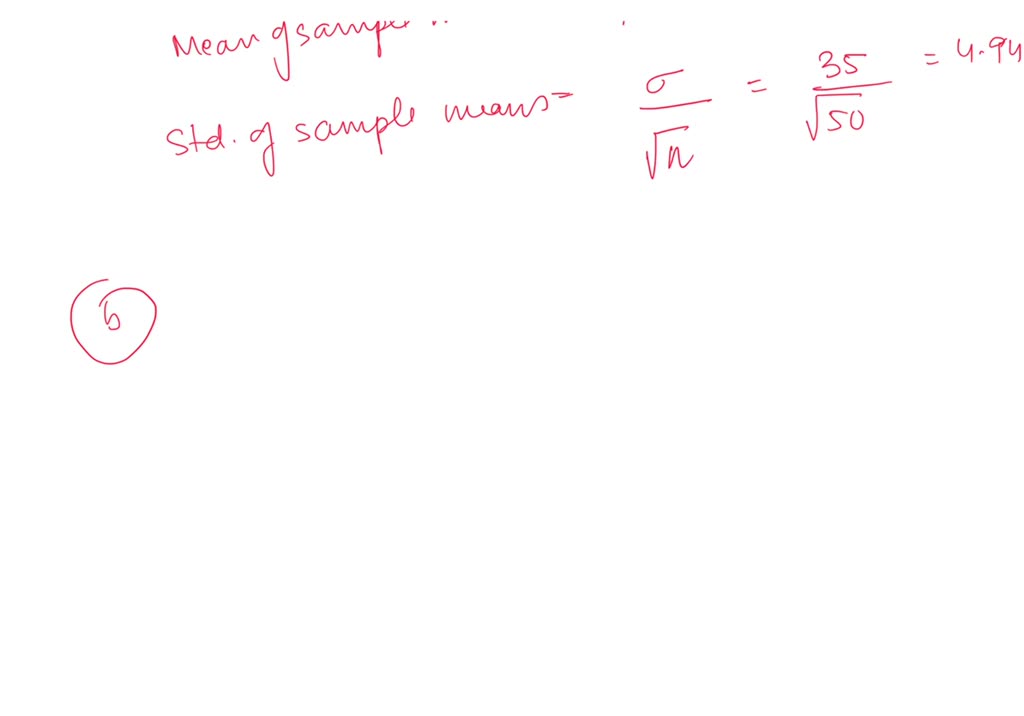 Mean of sample
Std. of sample means = σ/√n = 35/√50 = 4.94
b